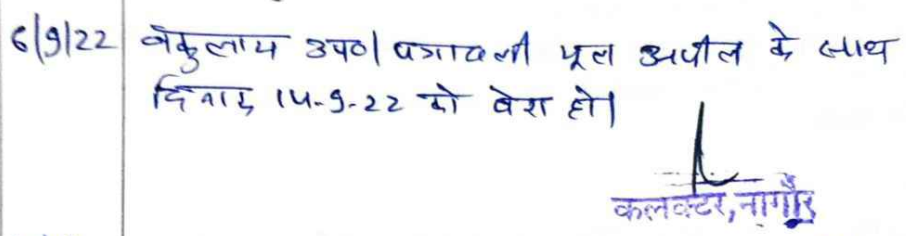 6/9/22 वकुलाय उप0। पत्रावली मूल अपील के साथ
दिनांक 14-9-22 को पेश हो।
कलक्टर, नागौर